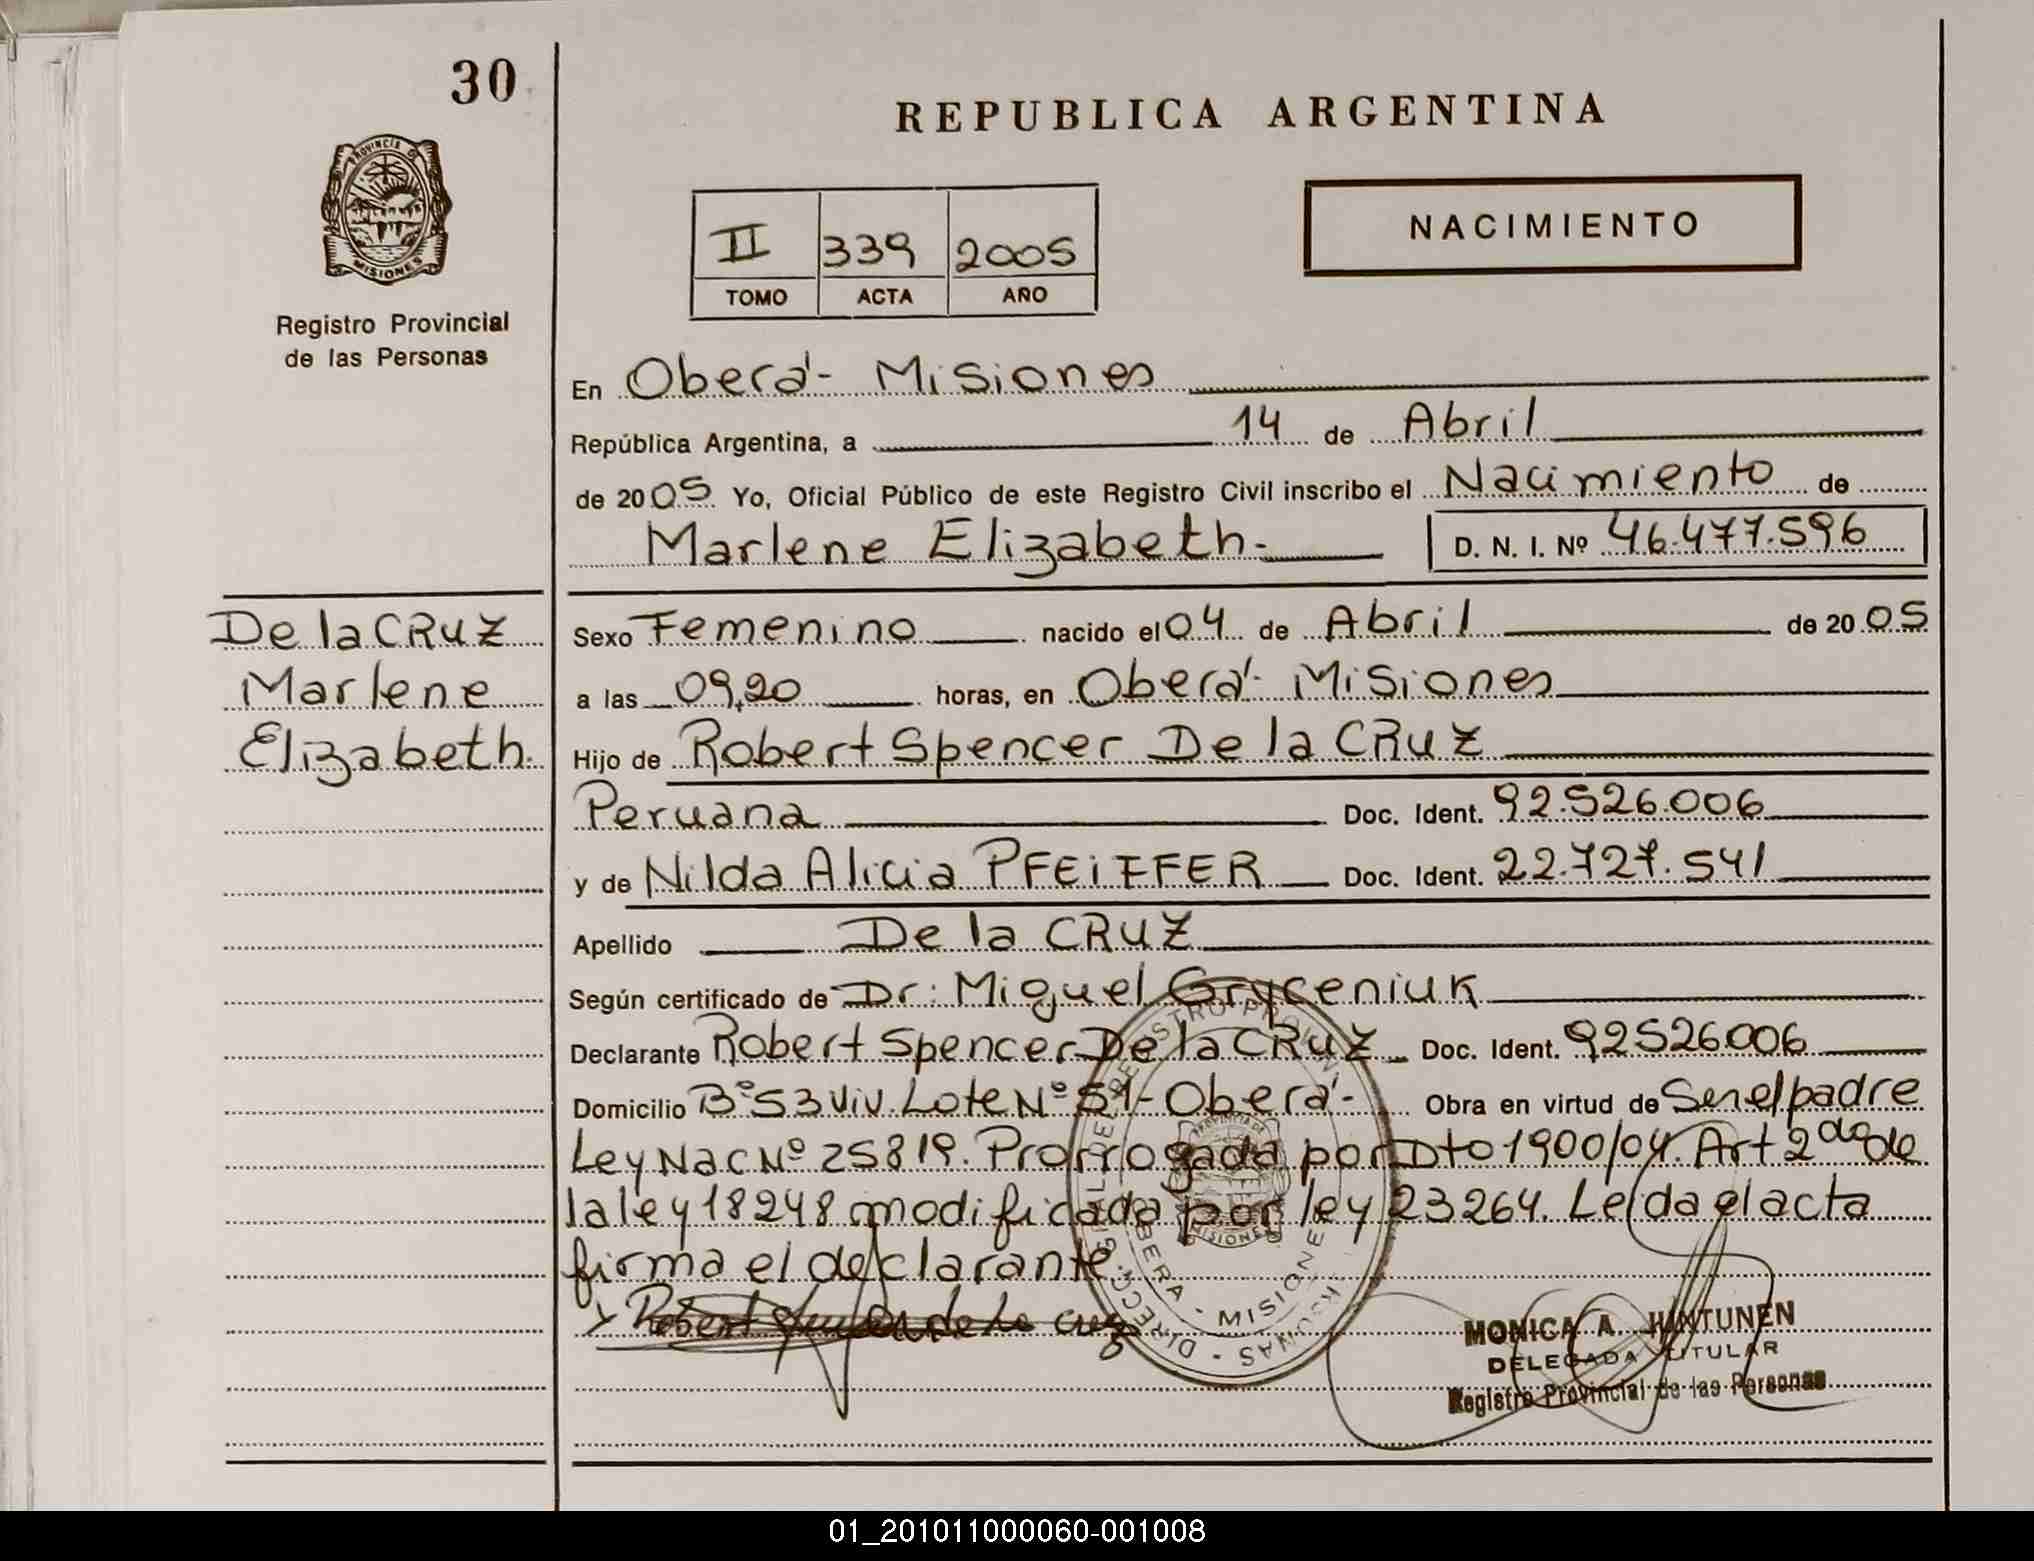 30
REPUBLICA ARGENTINA
PROVINCIA DE
MISIONES
Registro Provincial
de las Personas
NACIMIENTO
II 339 2005
TOMO ACTA AÑO
En Oberá - Misiones
República Argentina, a 14 de Abril
de 2005 Yo, Oficial Público de este Registro Civil inscribo el Nacimiento de
Marlene Elizabeth.- D. N. I. Nº 46.477.596
De la CRUZ
Marlene
Elizabeth.
Sexo Femenino nacido el 04 de Abril de 2005
a las 09,20 horas, en Oberá - Misiones
Hijo de Robert Spencer De la CRUZ
Peruana Doc. Ident. 92.526.006
y de Nilda Alicia PFEIFFER Doc. Ident. 22.727.541
Apellido De la CRUZ
Según certificado de Dr: Miguel Gryceniuk
Declarante Robert Spencer De la CRUZ Doc. Ident. 92526006
Domicilio Bº 53 Viv. Lote Nº 51 - Oberá - Obra en virtud de Ser el padre
Ley Nac Nº 25819. Prorrogada por Dto 1900/04. Art 2do de
la ley 18248 modificada por ley 23264. Leida el acta
firma el declarante.
Robert Spencer de la Cruz
MISIONES
OBERA - MISIONES
MONICA A. HINTUNEN
DELEGADA TITULAR
Registro Provincial de las Personas
01_201011000060-001008